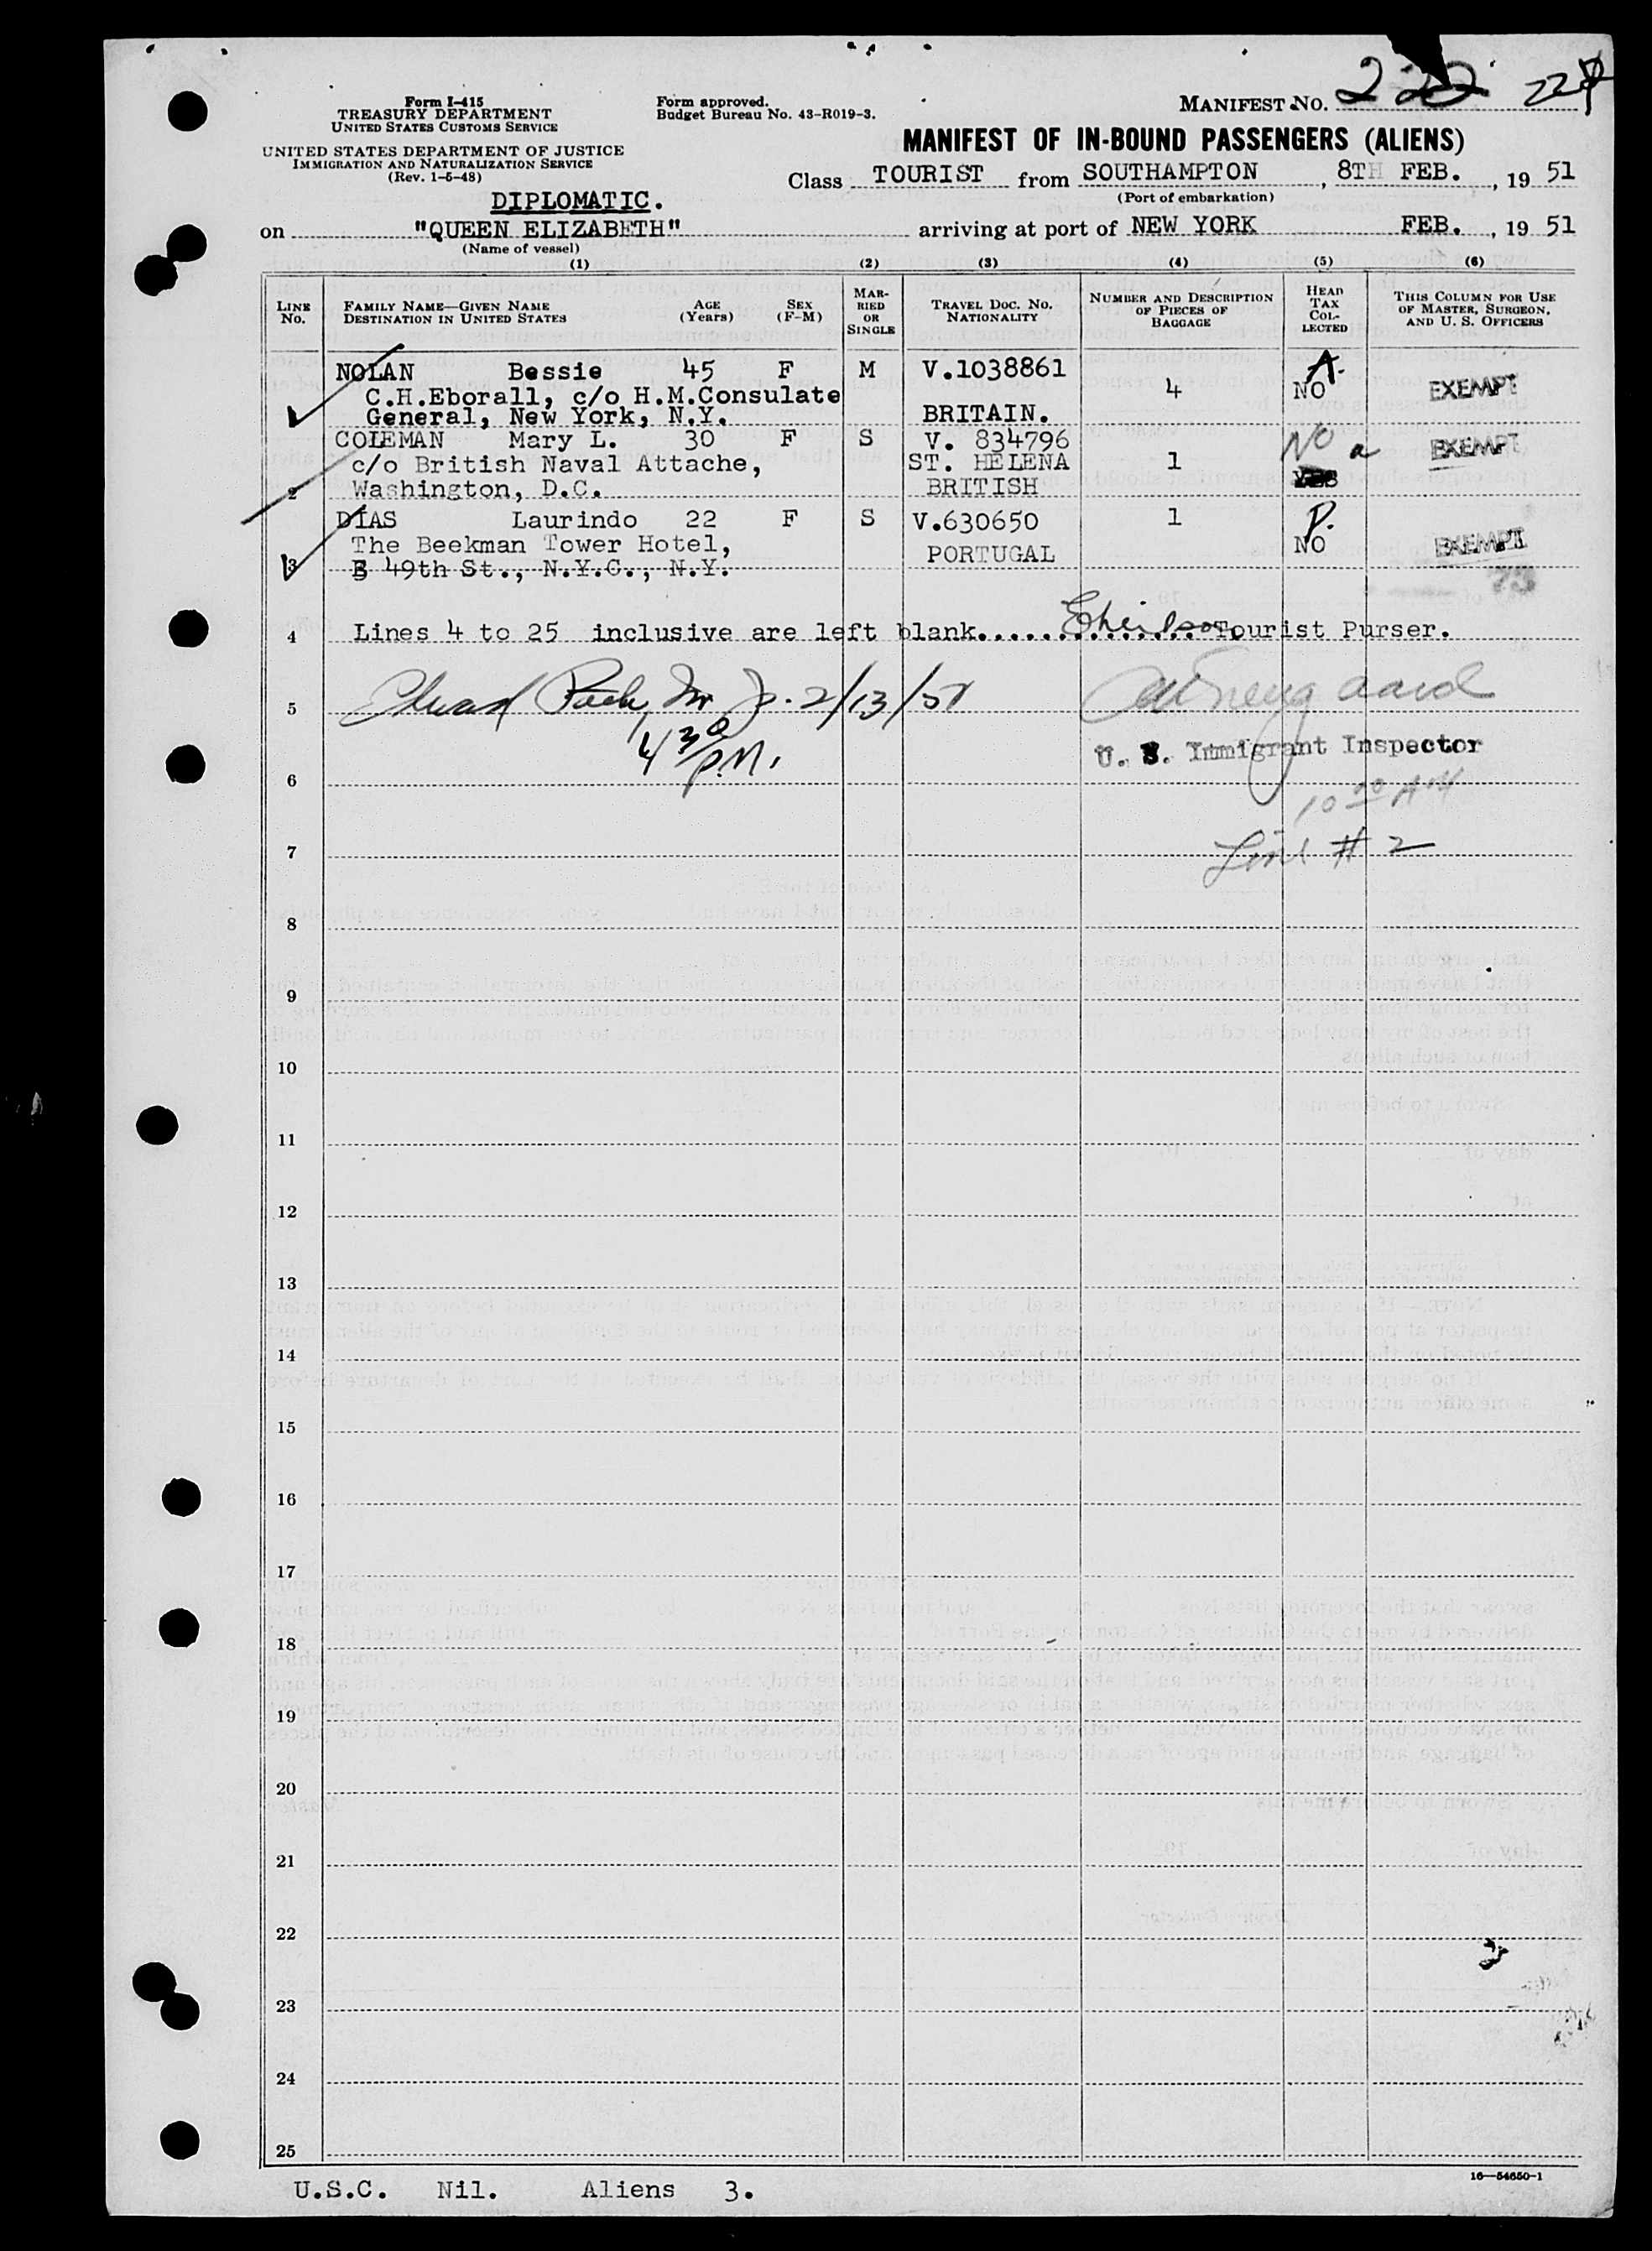 Form I-415
TREASURY DEPARTMENT
UNITED STATES CUSTOMS SERVICE
UNITED STATES DEPARTMENT OF JUSTICE
IMMIGRATION AND NATURALIZATION SERVICE
(Rev. 1-6-48)
Form approved.
Budget Bureau No. 43-R019-3.
MANIFEST NO. 222
MANIFEST OF IN-BOUND PASSENGERS (ALIENS)
Class TOURIST from SOUTHAMPTON, 8TH FEB., 19 51
(Port of embarkation)
DIPLOMATIC.
on "QUEEN ELIZABETH" arriving at port of NEW YORK FEB., 19 51
(Name of vessel)
(1) (2) (3) (4) (5) (6)
LINE No. FAMILY NAME—GIVEN NAME DESTINATION IN UNITED STATES AGE (Years) SEX (F-M) MARRIED OR SINGLE TRAVEL DOC. NO. NATIONALITY NUMBER AND DESCRIPTION OF PIECES OF BAGGAGE HEAD TAX COLLECTED THIS COLUMN FOR USE OF MASTER, SURGEON, AND U. S. OFFICERS
NOLAN Bessie 45 F M V.1038861 4 A. NO EXEMPT
C.H.Eborall, c/o H.M.Consulate
General, New York, N.Y. BRITAIN.
COLEMAN Mary L. 30 F S V. 834796 NO a EXEMPT
c/o British Naval Attache, ST. HELENA 1
2 Washington, D.C. BRITISH YES
DIAS Laurindo 22 F S V.630650 1 P.
The Beekman Tower Hotel, PORTUGAL NO EXEMPT
3 E 49th St., N.Y.C., N.Y.
73
4 Lines 4 to 25 inclusive are left blank. Tourist Purser.
5 2/13/51
4 30 P.M.
U. S. Immigrant Inspector
6
10 00 AM
7 Line # 2
8
9
10
11
12
13
14
15
16
17
18
19
20
21
22
23
24
25
16—54650-1
U.S.C. Nil. Aliens 3.